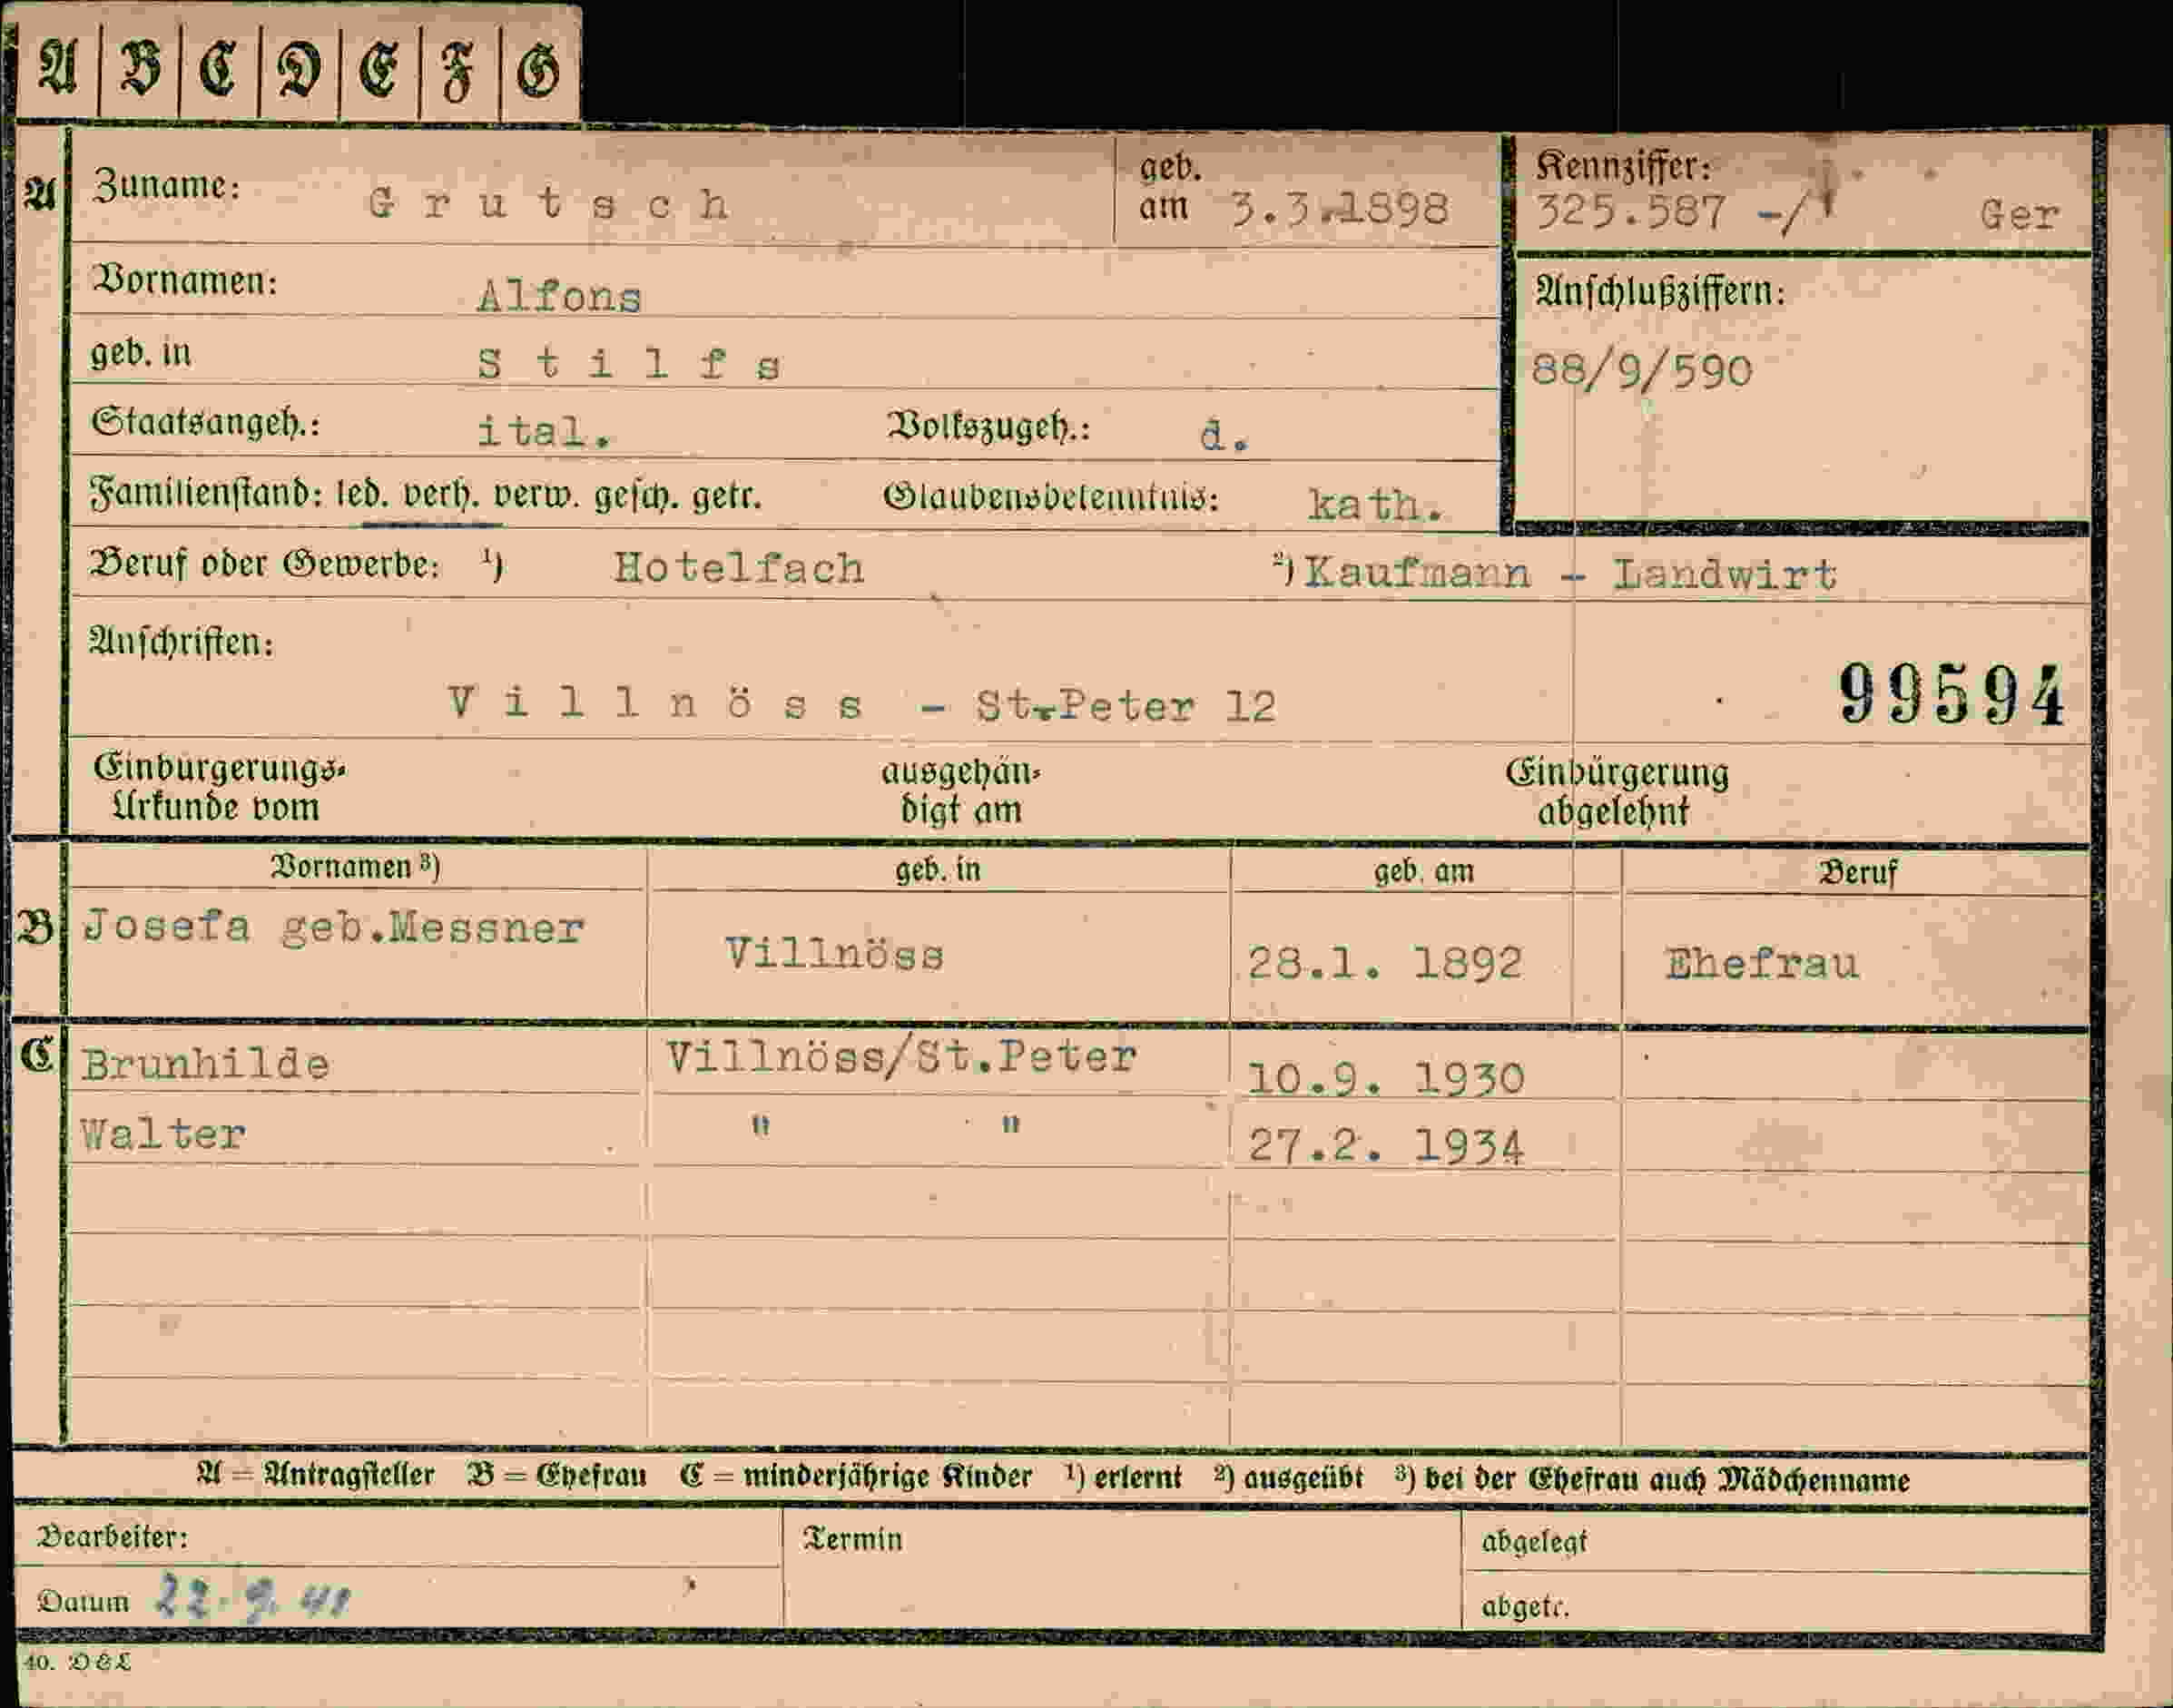 A B C D E F G
A Zuname: Grutsch geb. am 3.3.1898 Kennziffer: 325.587 -/ Ger
Vornamen: Alfons Anschlußziffern:
geb. in Stilfs 88/9/590
Staatsangeh.: ital. Volkszugeh.: d.
Familienstand: led. verh. verw. gesch. getr. Glaubensbekenntnis: kath.
Beruf oder Gewerbe: ¹) Hotelfach ²) Kaufmann - Landwirt
Anschriften:
Villnöss - St.Peter 12 99594
Einbürgerungs- ausgehän- Einbürgerung
Urkunde vom digt am abgelehnt
Vornamen ³) geb. in geb. am Beruf
B Josefa geb.Messner Villnöss 28.1. 1892 Ehefrau
C Brunhilde Villnöss/St.Peter 10.9. 1930
Walter " " 27.2. 1934
A = Antragsteller B = Ehefrau C = minderjährige Kinder ¹) erlernt ²) ausgeübt ³) bei der Ehefrau auch Mädchenname
Bearbeiter: Termin abgelegt
Datum 22.9. abgetr.
40. D&L